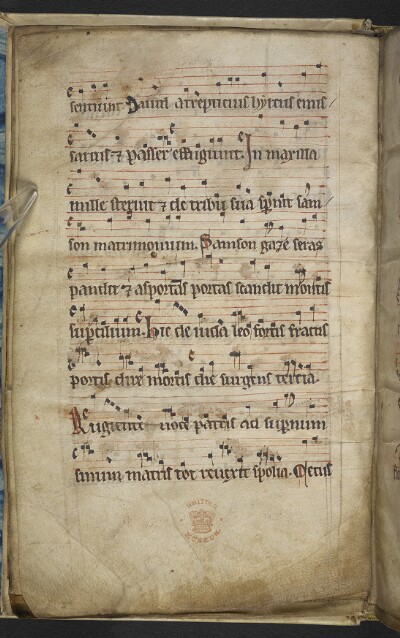 sentiunt David arrepticius hyrcus emis/
sarius ⁊ passer effugiunt. In maxilla
mille sternit ⁊ de tribu sua spnit sam/
son matrimonium. Samson gaze seras
pandit ⁊ asportans portas scandit montis
supcilium. Hic de iuda leo fortis fractis
portis dire mortis die surgens tercia.
Rugiente uoce patris ad supnum
sinum matris tot reuexit spolia. Cetus
BRITISH
MUSEUM